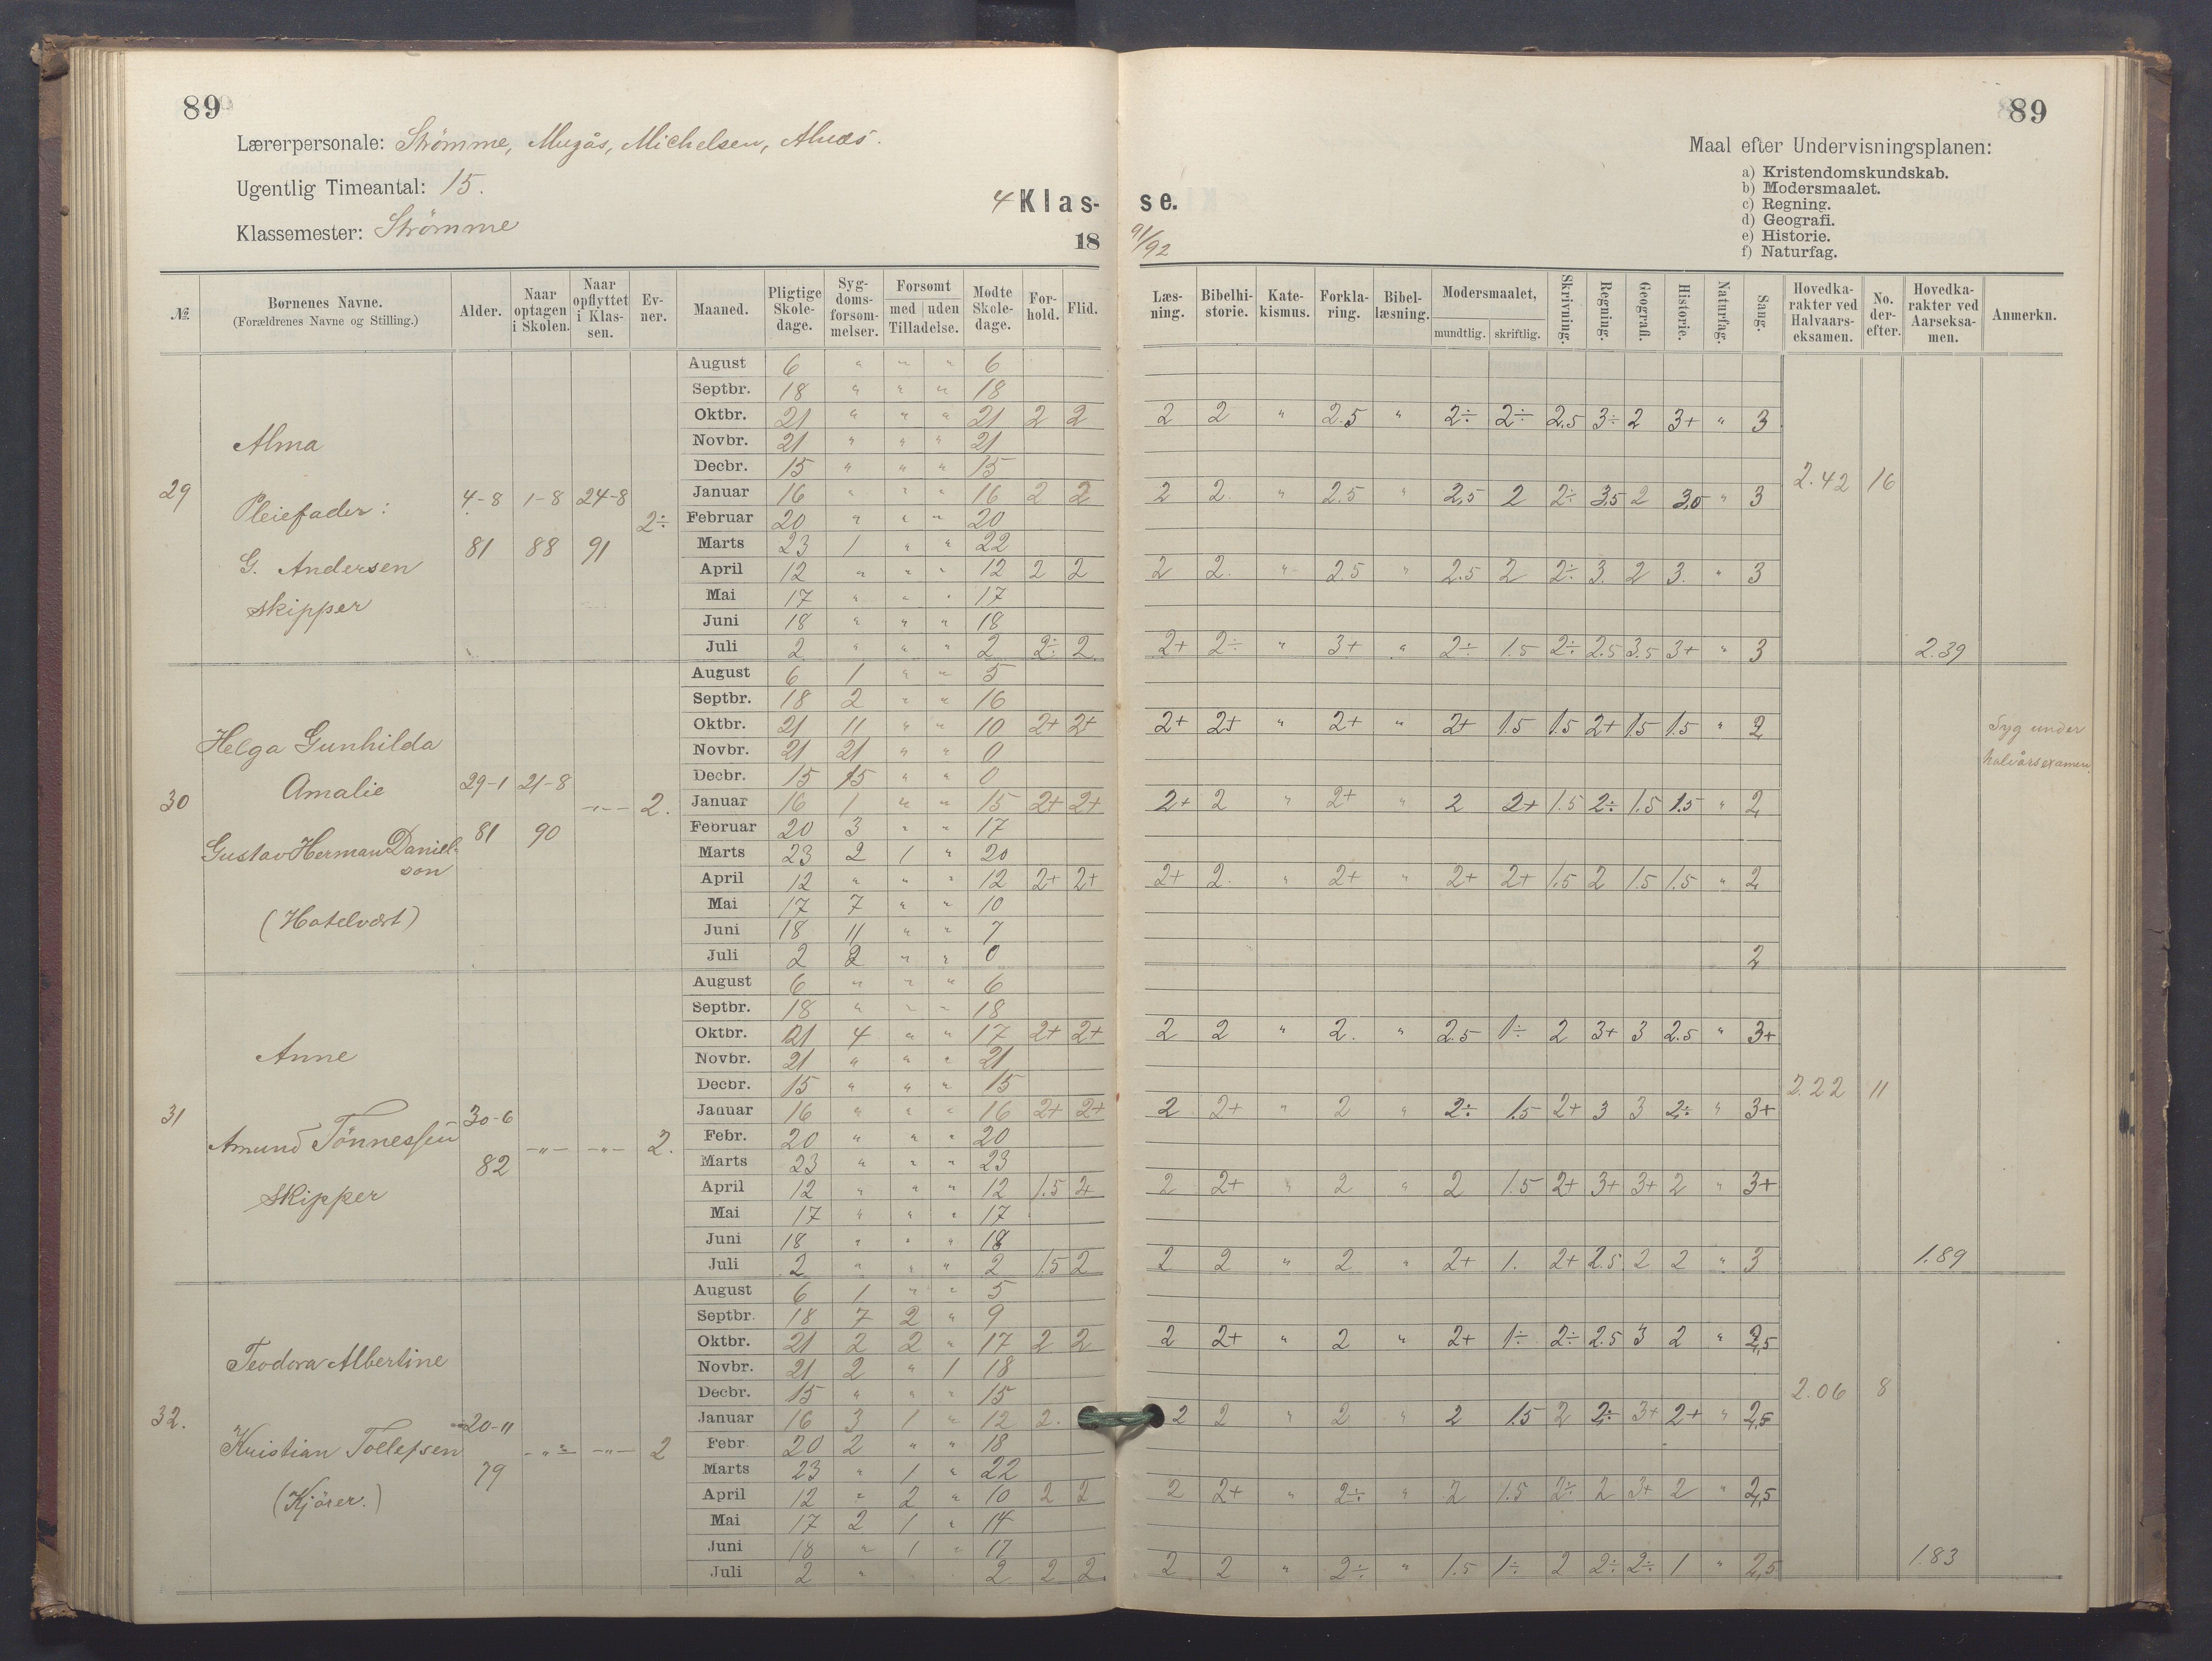 89
89
Lærerpersonale: Strömme, Mugås, Michelsen,
Ugentlig Timeantal: 15.
Klassemester: Strömme
4 Klasse.
18 91/92
Maal efter Undervisningsplanen:
a) Kristendomskundskab.
b) Modersmaalet.
c) Regning.
d) Geografi.
e) Historie.
f) Naturfag.
№. | Børnenes Navne. (Forældrenes Navne og Stilling.) | Alder. | Naar optagen i Skolen. | Naar opflyttet i Klassen. | Evner. | Maaned. | Pligtige Skoledage. | Sygdomsforsømmelser. | Forsømt med uden Tilladelse. | Mødte Skoledage. | Forhold. | Flid. | Læsning. | Bibelhistorie. | Katekismus. | Forklaring. | Bibellæsning. | Modersmaalet, mundtlig. skriftlig. | Skrivning. | Regning. | Geografi. | Historie. | Naturfag. | Sang. | Hovedkarakter ved Halvaarseksamen. | No. derefter. | Hovedkarakter ved Aarseksamen. | Anmerkn.
29 Alma
Pleiefader:
G. Andersen
skipper
4-8 81 | 1-8 88 | 24-8 91 | 2÷
August 6 " " " 6
Septbr. 18 " " " 18
Oktbr. 21 " " " 21 2 2 | 2 2 " 2.5 " 2÷ 2÷ 2.5 3÷ 2 3+ " 3
Novbr. 21 " " " 21
Decbr. 15 " " " 15
Januar 16 " " " 16 2 2 | 2 2. " 2.5 " 2,5 2 2÷ 3,5 2 3,5 " 3 | 2.42 16
Februar 20 " " " 20
Marts 23 1 " " 22
April 12 " " " 12 2 2 | 2 2. " 2.5 " 2.5 2 2÷ 3. 2 3. " 3
Mai 17 " " " 17
Juni 18 " " " 18
Juli 2 " " " 2 2÷ 2 | 2+ 2÷ " 3+ " 2÷ 1.5 2÷ 2.5 3.5 3+ " 3 | 2.39
30 Helga Gunhilda
Amalie
Gustav Herman Danielson
(Hotelvært)
29-1 81 | 21-8 90 | -"- | 2.
August 6 1 " " 5
Septbr. 18 2 " " 16
Oktbr. 21 11 " " 10 2+ 2+ | 2+ 2+ " 2+ " 2+ 1.5 1.5 2+ 1.5 1.5 " 2 | Syg under halvårsexamen.
Novbr. 21 21 " " 0
Decbr. 15 15 " " 0
Januar 16 1 " " 15 2+ 2+ | 2+ 2 " 2+ " 2 2+ 1.5 2÷ 1.5 1.5 " 2
Februar 20 3 " " 17
Marts 23 2 1 " 20
April 12 " " " 12 2+ 2+ | 2+ 2. " 2+ " 2+ 2+ 1.5 2 1.5 1.5 " 2
Mai 17 7 " " 10
Juni 18 11 " " 7
Juli 2 2 " " 0 | 2
31 Anne
Amund Tönnessen
skipper
30-6 82 | -"- | -"- | 2.
August 6 " " " 6
Septbr. 18 " " " 18
Oktbr. 21 4 " " 17 2+ 2+ | 2 2 " 2. " 2.5 1÷ 2 3+ 3 2.5 " 3+
Novbr. 21 " " " 21
Decbr. 15 " " " 15
Januar 16 " " " 16 2+ 2+ | 2 2+ " 2 " 2÷ 1.5 2+ 3 3 2÷ " 3+ | 2.22 11
Febr. 20 " " " 20
Marts 23 " " " 23
April 12 " " " 12 1.5 2+ | 2 2+ " 2 " 2 1.5 2+ 3+ 3+ 2 " 3+
Mai 17 " " " 17
Juni 18 " " " 18
Juli 2 " " " 2 1.5 2 | 2 2 " 2 " 2+ 1. 2+ 2.5 2 2 " 3 | 1.89
32. Teodora Albertine
Kristian Tollefsen
(Kjörer.)
20-11 79 | -"- | -"- | 2
August 6 1 " " 5
Septbr. 18 7 2 " 9
Oktbr. 21 2 2 " 17 2 2 | 2 2+ " 2 " 2+ 1÷ 2÷ 2.5 3 2 " 2,5
Novbr. 21 2 " 1 18
Decbr. 15 " " " 15
Januar 16 3 1 " 12 2. | 2 2 " 2 " 2 1.5 2 2÷ 3+ 2+ " 2,5 | 2.06 8
Febr 20 2 " " 18
Marts 23 " 1 " 22
April 12 " 2 " 10 2 2 | 2 2+ " 2÷ " 2 1.5 2÷ 2 3+ 2 " 2,5
Mai 17 2 1 " 14
Juni 18 " 1 " 17
Juli 2 " 2 2 2. | 2 2 " 2÷ " 1.5 1÷ 2 2÷ 2÷ 1 " 2,5 | 1.83